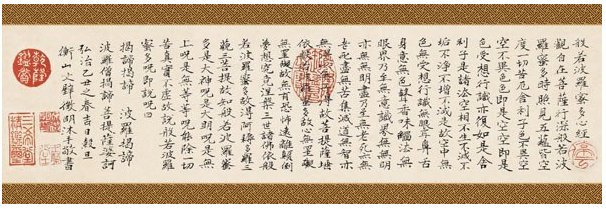 般若波羅蜜多心經
觀自在菩薩行深般若波
羅蜜多時照見五蘊皆空
度一切苦厄舍利子色不異空
空不異色色即是空空即是
色受想行識亦復如是舍
利子是諸法空相不生不滅不
垢不淨不增不減是故空中無
色無受想行識無眼耳鼻舌
身意無色聲香味觸法無
眼界乃至無意識界無無明
亦無無明盡乃至無老死亦無
老死盡無苦集滅道無智亦
無得以無所得故菩提薩埵
依般若波羅蜜多故心無罣礙
無罣礙故無有恐怖遠離顛倒
夢想究竟涅槃三世諸佛依般
若波羅蜜多故得阿耨多羅三
藐三菩提故知般若波羅蜜
多是大神呪是大明呪是無
上呪是無等等呪能除一切
苦真實不虛故說般若波羅
蜜多呪即說呪曰
揭諦揭諦 波羅揭諦
波羅僧揭諦菩提薩婆訶
弘治乙丑之春吉日穀旦
衡山文壁徵明沐手敬書
乾隆鑑賞